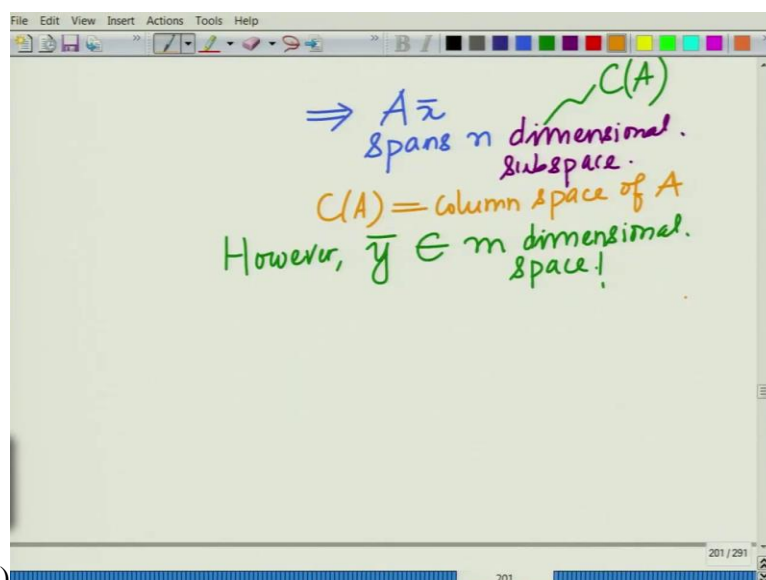 File Edit View Insert Actions Tools Help
B I
C(A)
⇒ Ax̄
spans n dimensional.
subspace.
C(A) = column space of A
However, ȳ ∈ m dimensional.
space!
201 / 291
)
201